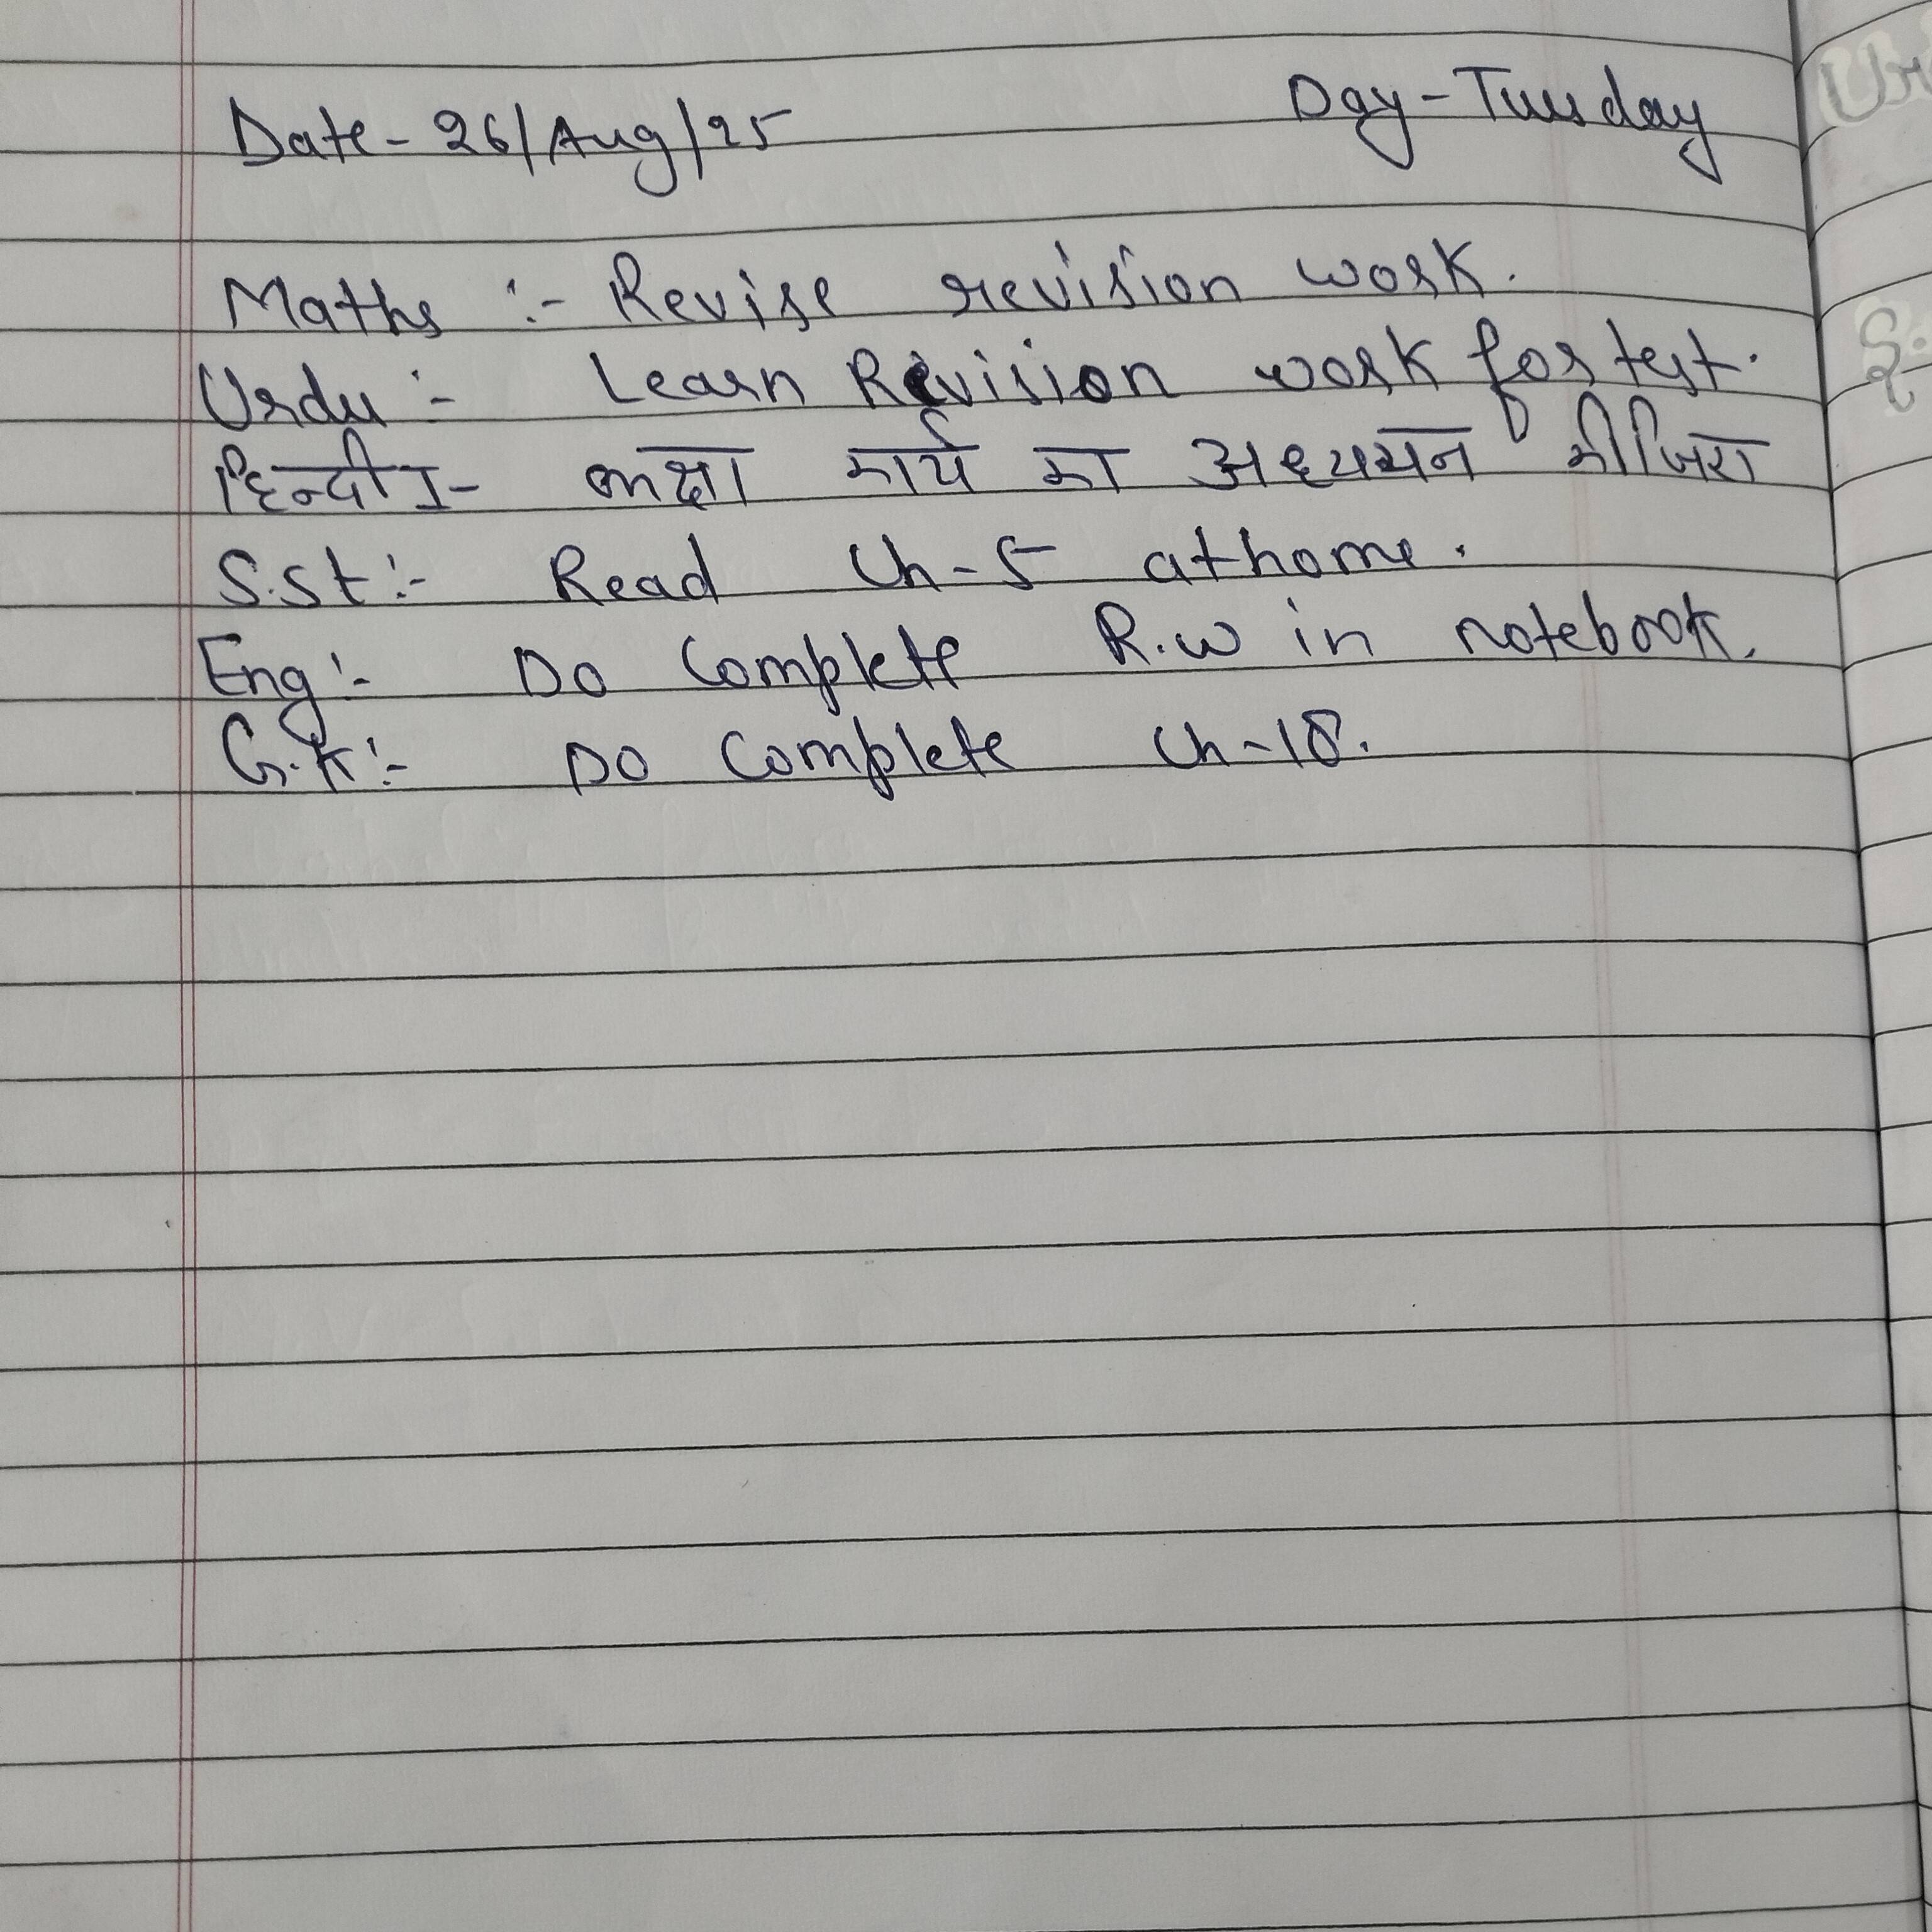 Date - 26/Aug/25 Day - Tuesday
Maths :- Revise revision work.
Urdu :- Learn Revision work for test.
हिन्दी I- कक्षा कार्य का अध्ययन कीजिए
S.St :- Read Ch-5 at home.
Eng :- Do Complete R.w in notebook.
G.K :- Do Complete Ch-18.